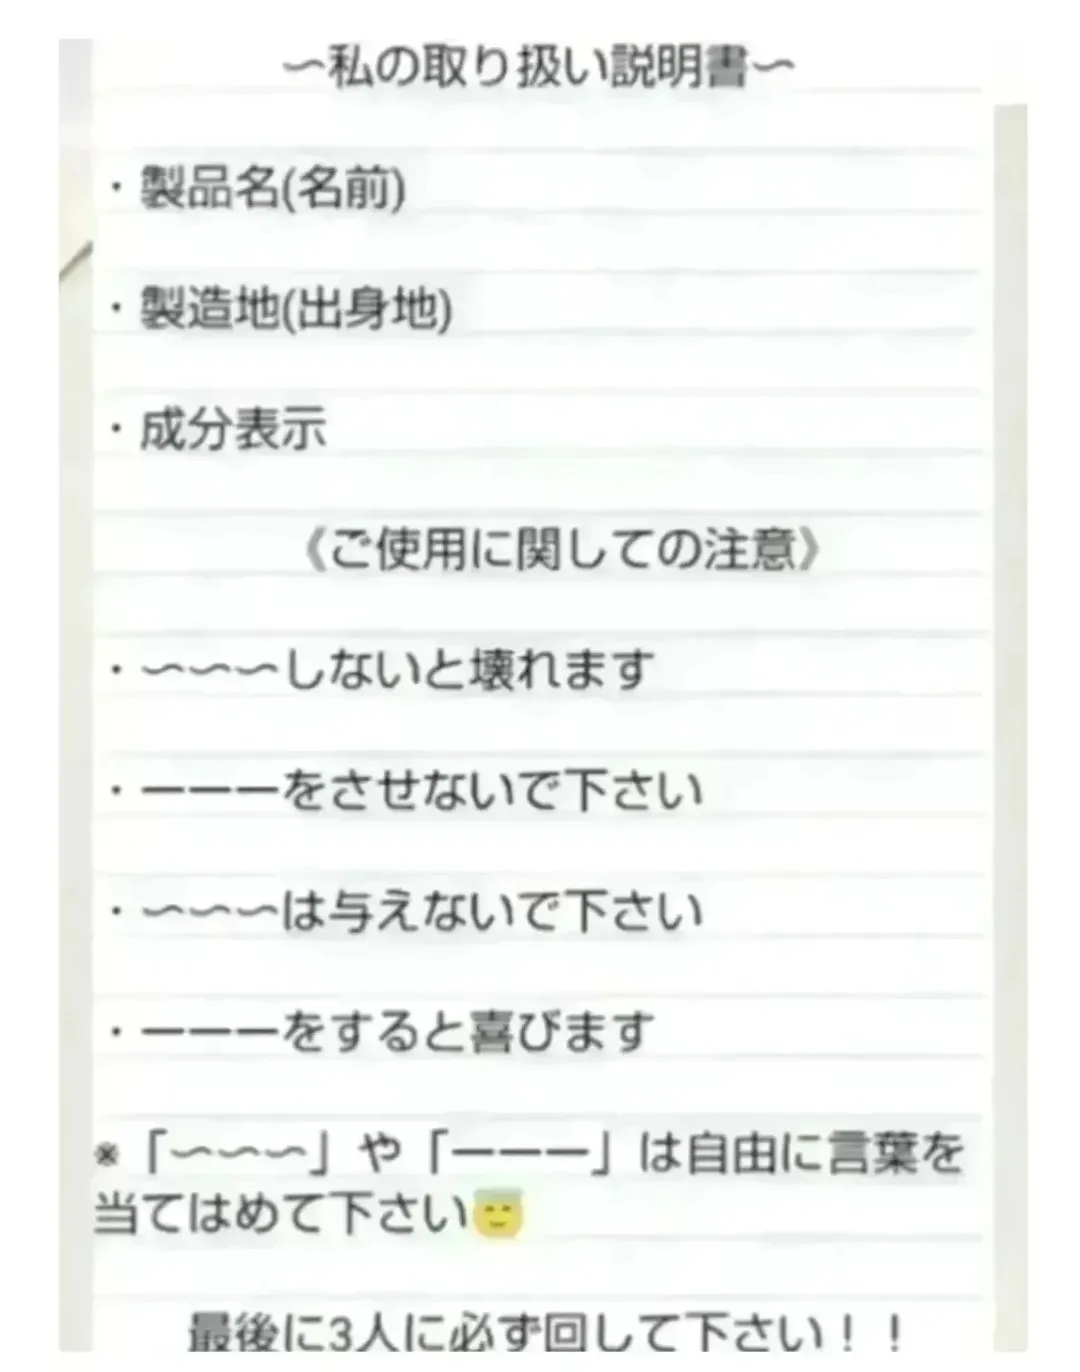 〜私の取り扱い説明書〜
・製品名(名前)
・製造地(出身地)
・成分表示
《ご使用に関しての注意》
・〜〜〜しないと壊れます
・ーーーをさせないで下さい
・〜〜〜は与えないで下さい
・ーーーをすると喜びます
※「〜〜〜」や「ーーー」は自由に言葉を
当てはめて下さい😇
最後に3人に必ず回して下さい！！